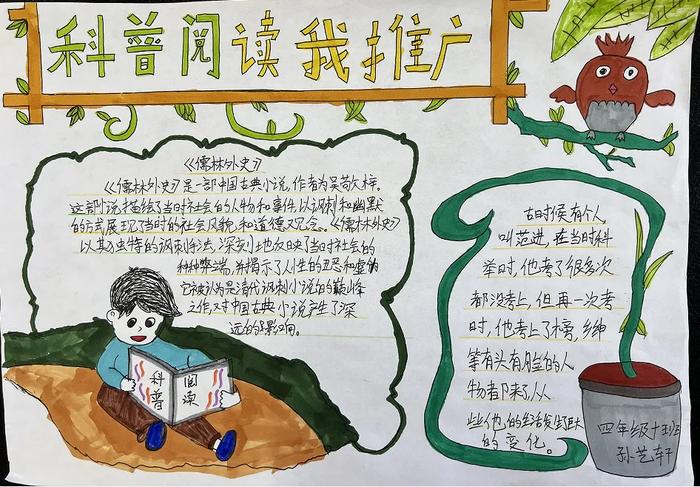 科普阅读我推广
《儒林外史》
《儒林外史》是一部中国古典小说,作者为吴敬梓。
这部小说描绘了当时社会的人物和事件,以讽刺和幽默
的方式展现了当时的社会风貌和道德观念。《儒林外史》
以其独特的讽刺手法,深刻地反映了当时社会的
种种弊端,并揭示了人性的丑恶和虚伪
它被认为是清代讽刺小说的巅峰
之作,对中国古典小说产生了深
远的影响。
古时侯有个人
叫范进,在当时科
举时,他考了很多次
都没考上,但再一次考
时,他考上了榜,乡绅
等有头有脸的人
物都来了,从
些他,的生活发生巨大
的变化。
科普
阅读
四年级十班
孙艺轩